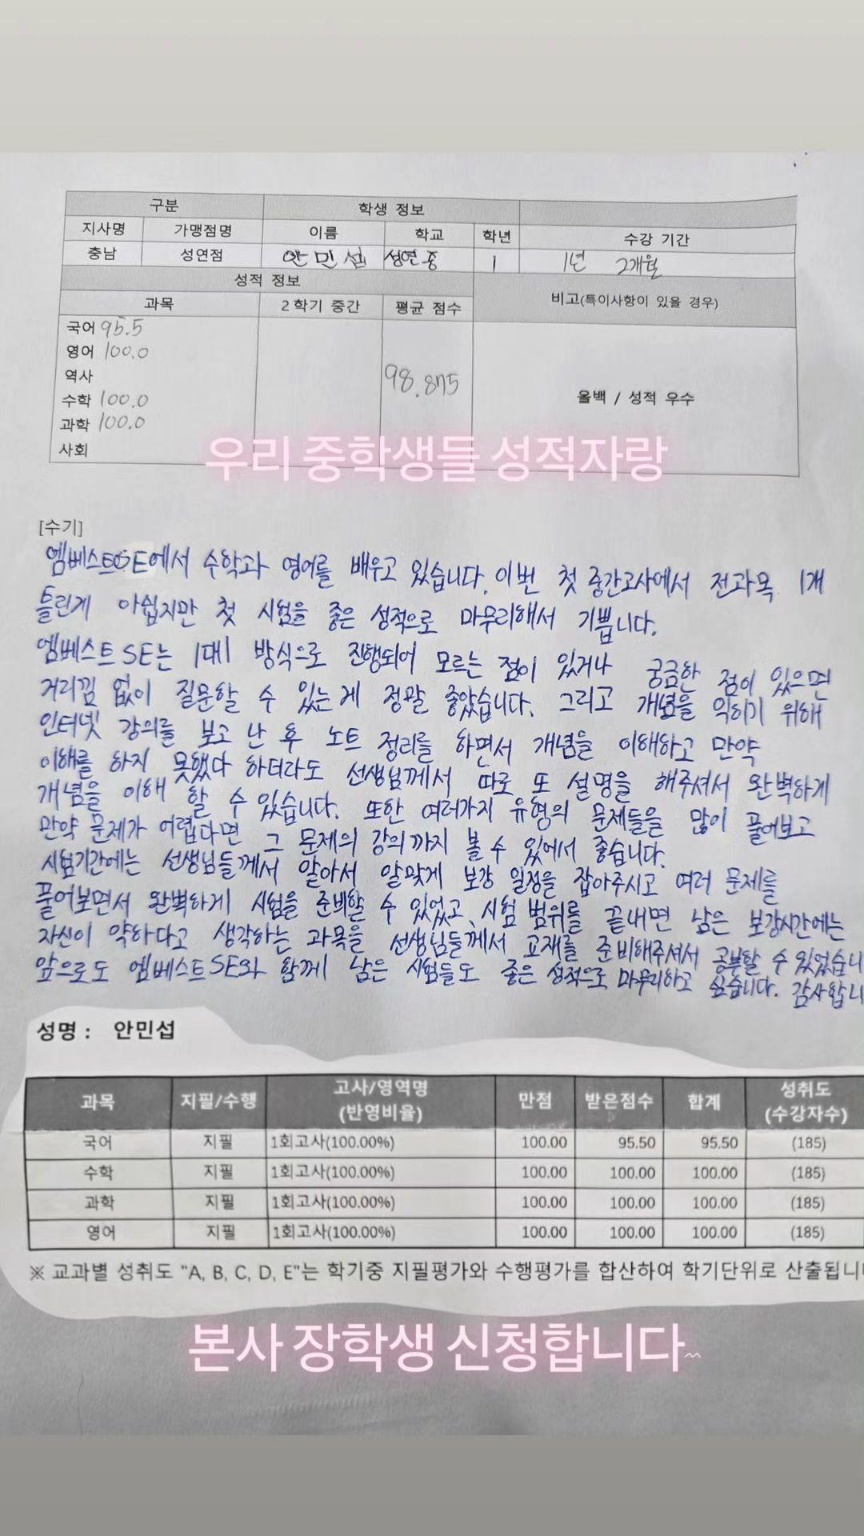 구분 학생 정보
지사명 가맹점명 이름 학교 학년 수강 기간
충남 성연점 안민섭 성연중 1 1년 2개월
성적 정보 비고(특이사항이 있을 경우)
과목 2학기 중간 평균 점수
국어 95.5
영어 100.0
역사
수학 100.0
과학 100.0
사회
98.875
올백 / 성적 우수
우리 중학생들 성적자랑
[수기]
엠베스트SE에서 수학과 영어를 배우고 있습니다. 이번 첫 중간고사에서 전과목 1개
틀린게 아쉽지만 첫 시험을 좋은 성적으로 마무리해서 기쁩니다.
엠베스트SE는 1대1 방식으로 진행되어 모르는 점이 있거나 궁금한 점이 있으면
거리낌 없이 질문할 수 있는게 정말 좋았습니다. 그리고 개념을 익히기 위해
인터넷 강의를 보고 난 후 노트 정리를 하면서 개념을 이해하고 만약
이해를 하지 못했다 하더라도 선생님께서 따로 또 설명을 해주셔서 완벽하게
개념을 이해 할 수 있습니다. 또한 여러가지 유형의 문제들을 많이 풀어보고
만약 문제가 어렵다면 그 문제의 강의까지 볼 수 있어서 좋습니다.
시험기간에는 선생님들께서 알아서 알맞게 보강 일정을 잡아주시고 여러 문제를
풀어보면서 완벽하게 시험을 준비할 수 있었고, 시험 범위를 끝내면 남은 보강시간에는
자신이 약하다고 생각하는 과목을 선생님들께서 교재를 준비해주셔서 공부할 수 있었습니
앞으로도 엠베스트SE와 함께 남은 시험들도 좋은 성적으로 마무리하고 싶습니다. 감사합니
성명 : 안민섭
과목 지필/수행 고사/영역명 (반영비율) 만점 받은점수 합계 성취도 (수강자수)
국어 지필 1회고사(100.00%) 100.00 95.50 95.50 (185)
수학 지필 1회고사(100.00%) 100.00 100.00 100.00 (185)
과학 지필 1회고사(100.00%) 100.00 100.00 100.00 (185)
영어 지필 1회고사(100.00%) 100.00 100.00 100.00 (185)
※ 교과별 성취도 "A, B, C, D, E"는 학기중 지필평가와 수행평가를 합산하여 학기단위로 산출됩니
본사 장학생 신청합니다~